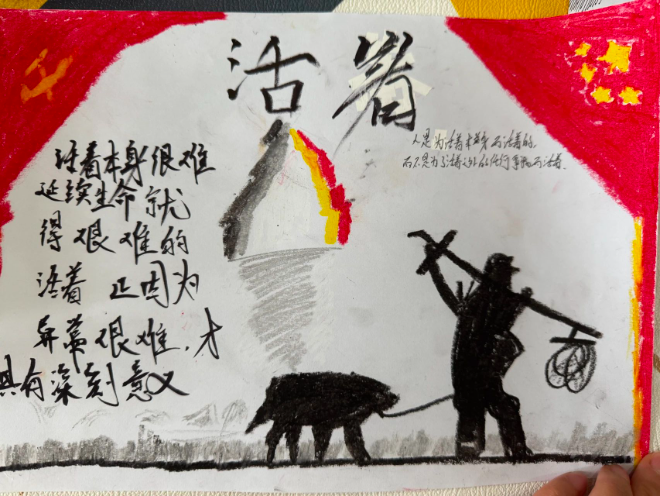 活着
人是为活着本身而活着的
而不是为了活着之外的任何事物而活着.
活着本身很难
延续生命就
得艰难的
活着 正因为
异常艰难,才
具有深刻意义